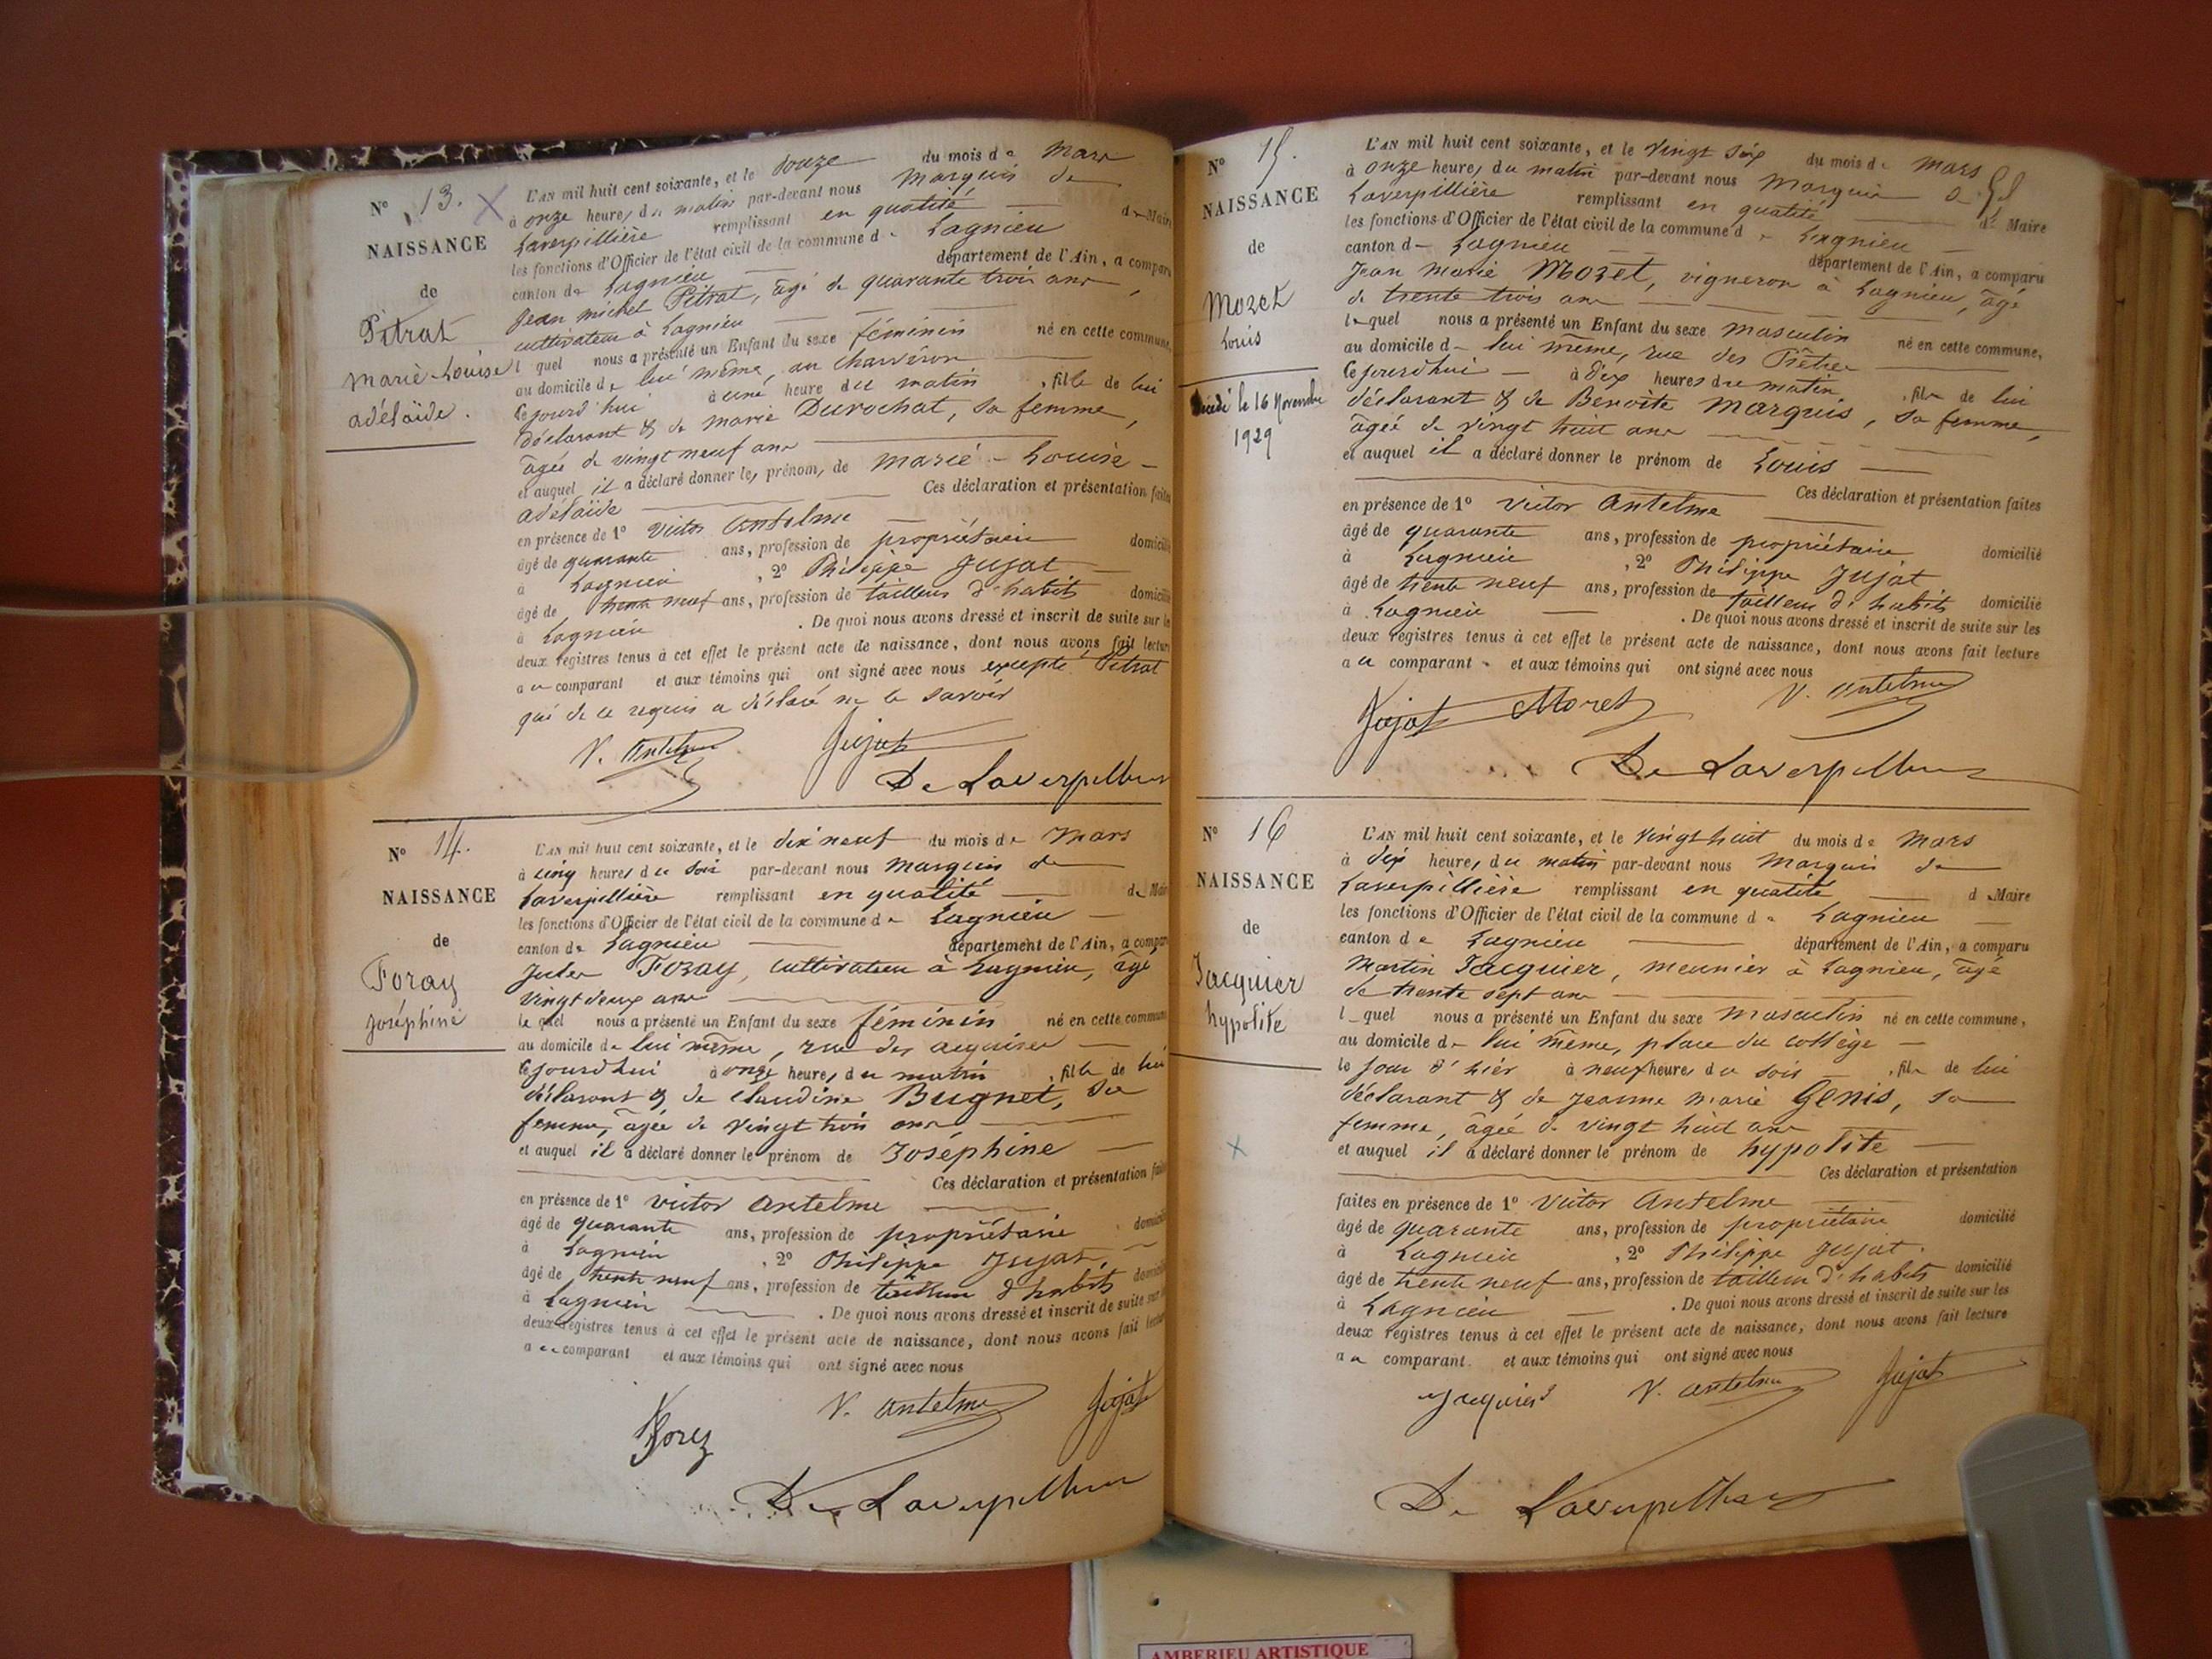 N° 13.
NAISSANCE
de
Pétrat
Marie-Louise
adélaïde.
L'AN mil huit cent soixante, et le douze du mois de Mars
à onze heures du matin par-devant nous Marquis de
Laverpillière remplissant en qualité de Maire
les fonctions d'Officier de l'état civil de la commune de Lagnieu
canton de Lagnieu département de l'Ain, a comparu
Jean Michel Pétrat, âgé de quarante trois ans,
cultivateur à Lagnieu
l quel nous a présenté un Enfant du sexe féminin né en cette commune,
au domicile de lui même, au Charvéron
Cejourd'hui à une heure du matin, fille de lui
déclarant & de Marie Durochat, sa femme,
âgée de vingt neuf ans
et auquel il a déclaré donner les prénom, de Marie-Louise-
adélaïde Ces déclaration et présentation faites
en présence de 1° Victor Antelme
âgé de quarante ans, profession de propriétaire domicilié
à Lagnieu, 2° Philippe Jujat
âgé de trente neuf ans, profession de tailleur d'habits domicilié
à Lagnieu. De quoi nous avons dressé et inscrit de suite sur les
deux registres tenus à cet effet le présent acte de naissance, dont nous avons fait lecture
au comparant et aux témoins qui ont signé avec nous excepté Pétrat
qui de ce requis a déclaré ne le savoir
V. Antelme Jujat
De Laverpillière
N° 14.
NAISSANCE
de
Foray
Joséphine
L'AN mil huit cent soixante, et le dix neuf du mois de Mars
à cinq heures du soir par-devant nous Marquis de
Laverpillière remplissant en qualité de Maire
les fonctions d'Officier de l'état civil de la commune de Lagnieu
canton de Lagnieu département de l'Ain, a comparu
Foray, cultivateur à Lagnieu, âgé
vingt deux ans
le quel nous a présenté un Enfant du sexe féminin né en cette commune
au domicile de lui même, rue des
Cejourdhui à onze heures du matin, fille de lui
déclarant & de Claudine Bugnet, sa
femme, âgée de vingt trois ans
et auquel il a déclaré donner le prénom de Joséphine
Ces déclaration et présentation faites
en présence de 1° Victor Antelme
âgé de quarante ans, profession de propriétaire domicilié
à Lagnieu, 2° Philippe Jujat,
âgé de trente neuf ans, profession de tailleur d'habits domicilié
à Lagnieu. De quoi nous avons dressé et inscrit de suite sur les
deux registres tenus à cet effet le présent acte de naissance, dont nous avons fait lecture
au comparant et aux témoins qui ont signé avec nous
Forez V. Antelme Jujat
De Laverpillière
N° 15.
NAISSANCE
de
Morel
Louis
Décédé le 16 Novembre
1929
L'AN mil huit cent soixante, et le vingt six du mois de Mars
à onze heures du matin par-devant nous Marquis de
Laverpillière remplissant en qualité de Maire
les fonctions d'Officier de l'état civil de la commune d Lagnieu
canton d Lagnieu département de l'Ain, a comparu
Jean Marie Morel, vigneron à Lagnieu, âgé
de trente trois ans
lequel nous a présenté un Enfant du sexe masculin né en cette commune,
au domicile de lui même, rue des Prêtres
Cejourdhui à dix heures du matin, fils de lui
déclarant & de Benoîte Marquis, sa femme,
âgée de vingt huit ans
et auquel il a déclaré donner le prénom de Louis
Ces déclaration et présentation faites
en présence de 1° Victor Antelme
âgé de quarante ans, profession de propriétaire domicilié
à Lagnieu, 2° Philippe Jujat
âgé de trente neuf ans, profession de tailleur d'habits domicilié
à Lagnieu. De quoi nous avons dressé et inscrit de suite sur les
deux registres tenus à cet effet le présent acte de naissance, dont nous avons fait lecture
au comparant et aux témoins qui ont signé avec nous
Jujat Morel V. Antelme
De Laverpillière
N° 16
NAISSANCE
de
Jacquier
hypolite
L'AN mil huit cent soixante, et le vingt huit du mois de Mars
à dix heures du matin par-devant nous Marquis de
Laverpillière remplissant en qualité d Maire
les fonctions d'Officier de l'état civil de la commune de Lagnieu
canton de Lagnieu département de l'Ain, a comparu
Martin Jacquier, meunier à Lagnieu, âgé
de trente sept ans
l quel nous a présenté un Enfant du sexe masculin né en cette commune,
au domicile de lui même, place du collège
le jour d'hier à neuf heures du soir, fils de lui
déclarant & de Jeanne Marie Genis, sa
femme, âgée de vingt huit ans
et auquel il a déclaré donner le prénom de hypolite
Ces déclaration et présentation
faites en présence de 1° Victor Antelme
âgé de quarante ans, profession de propriétaire domicilié
à Lagnieu, 2° Philippe Jujat.
âgé de trente neuf ans, profession de tailleur d'habits domicilié
à Lagnieu. De quoi nous avons dressé et inscrit de suite sur les
deux registres tenus à cet effet le présent acte de naissance, dont nous avons fait lecture
au comparant. et aux témoins qui ont signé avec nous
Jacquier V. Antelme Jujat
De Laverpillière
AMBERIEU ARTISTIQUE